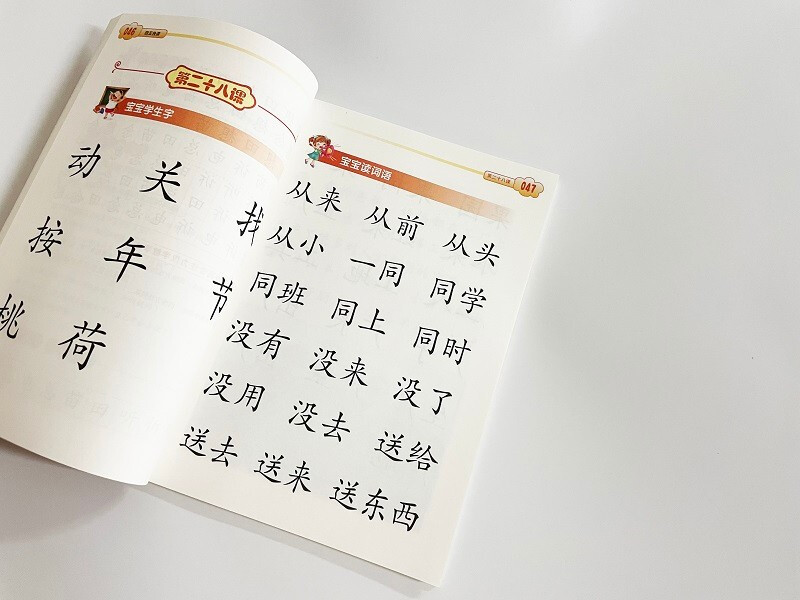 046
第二十八课
宝宝学生字
动 关 找
按 年 节
桃 荷
第二十八课 047
宝宝读词语
从来 从前 从头
从小 一同 同学
同班 同上 同时
没有 没来 没了
没用 没去 送给
送去 送来 送东西